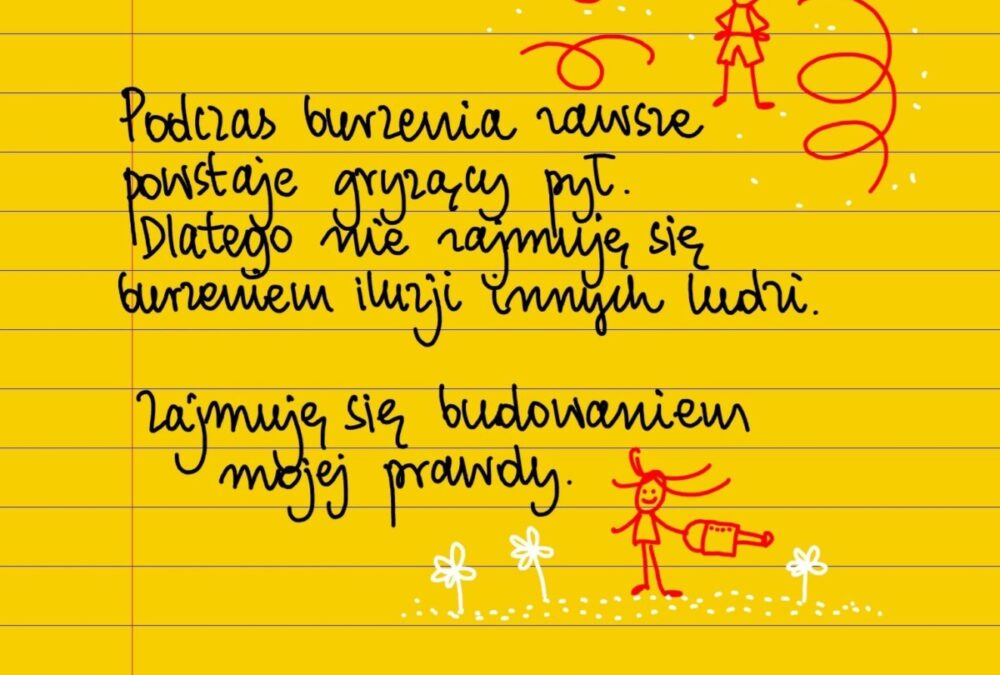 Podczas burzenia zawsze
powstaje gryzący pył.
Dlatego nie zajmuję się
burzeniem iluzji innych ludzi.
Zajmuję się budowaniem
mojej prawdy.